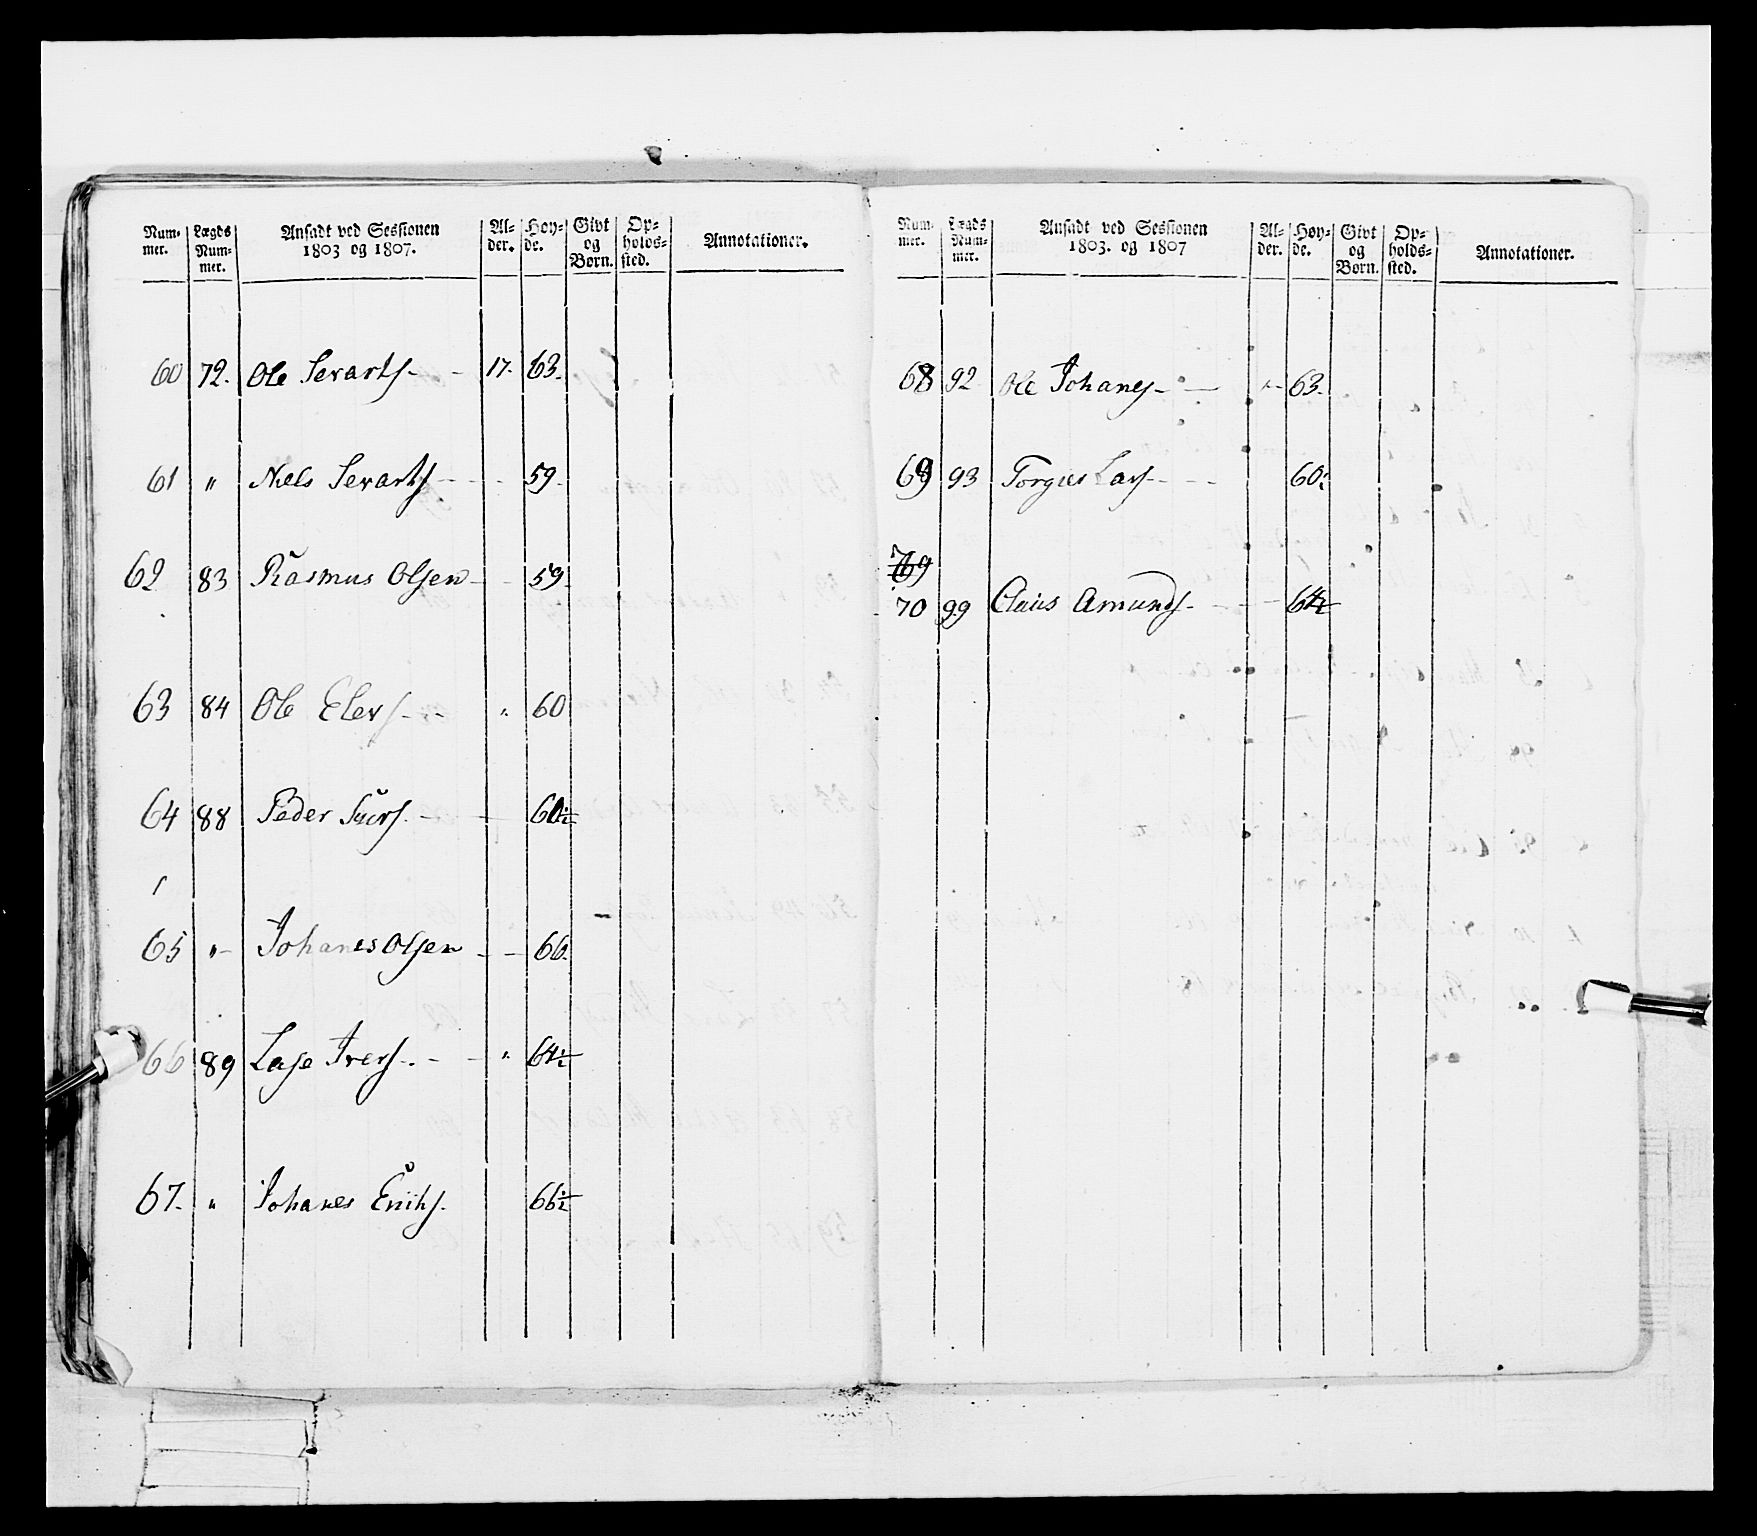 Num-mer. Lægds Num-mer. Ansadt ved Sessionen 1803 og 1807. Al-der. Høy-de. Givt og Børn. Op-holds-sted. Annotationer.
60 72. Ole Sevarts. - 17. 63.
61 " Niels Sevarts - - - 59.
62 83 Rasmus Olsen - - 59.
63 84 Ole Elers. - - " 60
64 88 Peder Siurs. - - 60½
65 " - Johanes Olsen - - 66.
66 89 Lase Ivers. - - " 64½
67. " Johanes Eriks. 66½
Num-mer. Lægds Num-mer. Ansadt ved Sessionen 1803. og 1807 Al-der. Høy-de. Givt og Børn. Op-holds-sted. Annotationer.
68 92 Ole Johanes - - " - 63.
69 93 Torgies Lars - - - 60.
70 99 Claus Amunds. - - - 64½